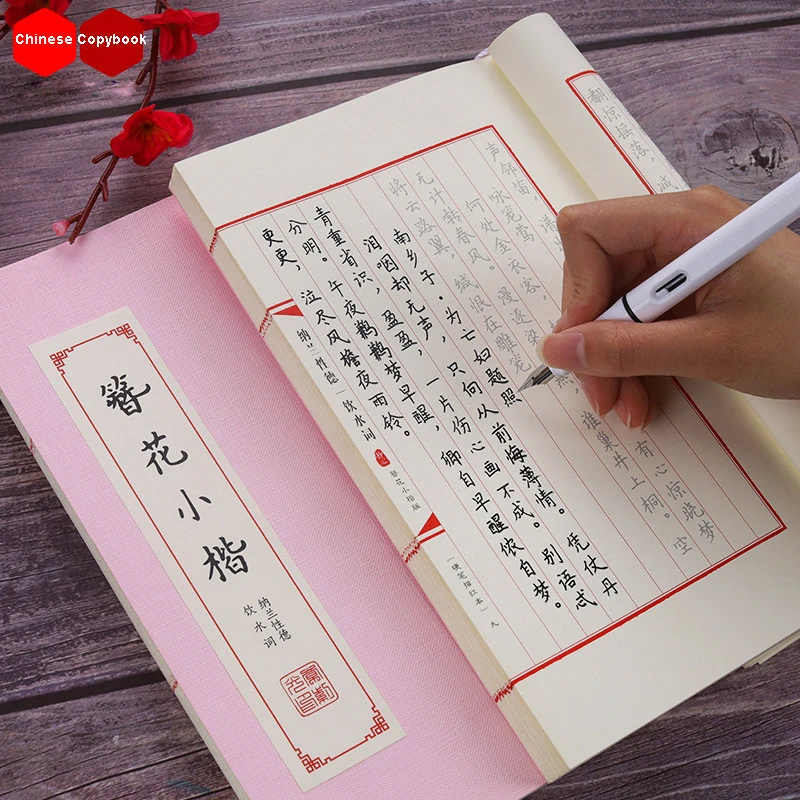 Chinese Copybook
翻惊摇落,减
声邻笛,谱
咏笼莺
何处金衣客,
有心惊晓梦
无计转春风。漫逐梁
谁巢井上桐。空
将云路翼,缄恨在雕笼
南乡子。为亡如题照
泪咽却无声,只向从前悔薄情。凭仗丹
青重省识,盈盈,一片伤心画不成。别语忒
分明。午夜鹣鹣梦早醒,卿自早醒侬自梦。
更更,泣尽风檐夜雨铃。
纳兰性德|饮水词
簪花小楷版
「硬笔描红本」 九
簪花小楷
纳兰性德
饮水词